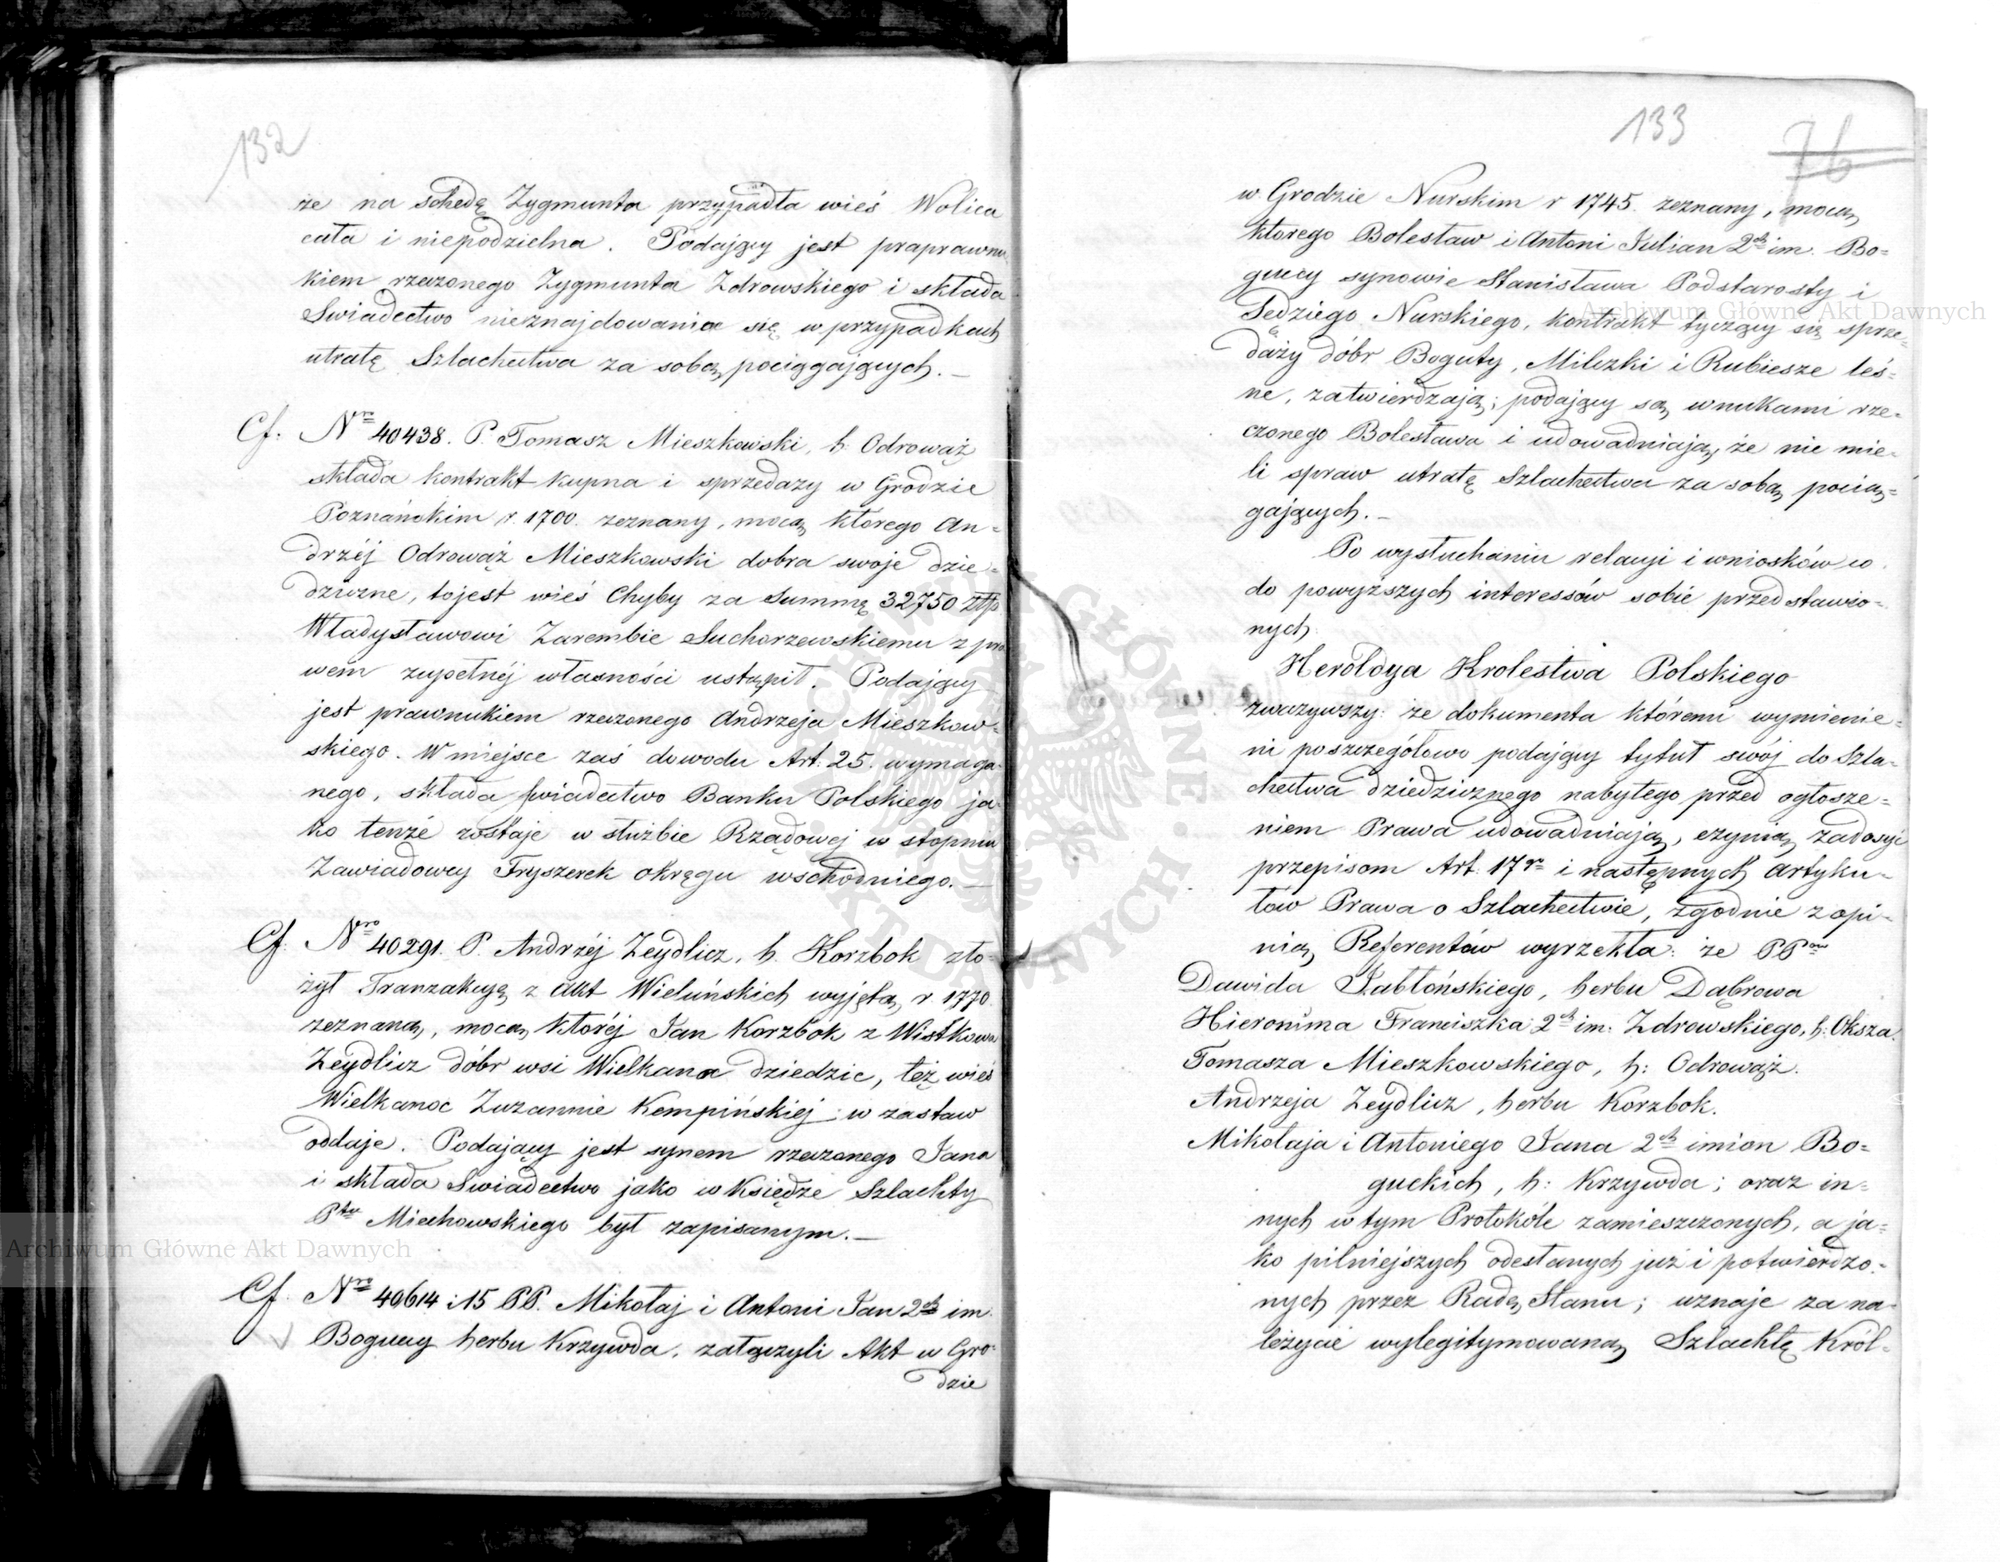 132
że na schedę Zygmunta przypadła wieś Wolica
cała i niepodzielna. Podający jest praprawnu
kiem rzeczonego Zygmunta Zdrowskiego i składa
Swiadectwo nieznajdowania się w przypadkach
utratę Szlachectwa za sobą pociągających. —
Cf. Nro 40438. P. Tomasz Mieszkowski, h. Odrowąż
składa kontrakt kupna i sprzedaży w Grodzie
Poznańskim r. 1700. zeznany, mocą którego An=
drzéj Odrowąż Mieszkowski dobra swoje dzie=
dziczne, tojest wieś Chyby za Summę 32750 złp
Władysławowi Zarembie Suchorzewskiemu z pra
wem zupełnéj własności ustąpił. Podający
jest prawnukiem rzeczonego Andrzeja Mieszkow=
skiego. W miejsce zaś dowodu Art. 25. wymaga=
nego, składa świadectwo Banku Polskiego ja
ko tenże zostaje w służbie Rządowej w stopniu
Zawiadowcy Fryszerek okręgu wschodniego. —
Cf. Nro 40291. P. Andrzéj Zeydlicz, h. Korzbok zło=
żył Tranzakcyę z akt Wieluńskich wyjętą r. 1770.
zeznaną, mocą któréj Jan Korzbok z Wistkowa
Zeydlicz dóbr wsi Wielkanoc dziedzic, tęż wieś
Wielkanoc Zuzannie Kempińskiej w zastaw
oddaje. Podający jest synem rzeczonego Jana
i składa Swiadectwo jako w Księdze Szlachty
Ptu Miechowskiego był zapisanym. —
Cf. Nro 40614 i 15 PP. Mikołaj i Antoni Jan 2ch im.
Boguccy herbu Krzywda, załączyli Akt w Gro=
dzie
133
76
w Grodzie Nurskim r 1745. zeznany, mocą
ktorego Bolesław i Antoni Julian 2ch im. Bo=
guccy synowie Stanisława Podstarosty i
Sędziego Nurskiego, kontrakt tyczący się sprze=
daży dóbr Boguty, Milczki i Rubiesze leś=
ne, zatwierdzają; podający są wnukami rze=
czonego Bolesława i udowadniają, że nie mie=
li spraw utratę Szlachectwa za sobą pocią=
gających. —
Po wysłuchaniu relacyi i wniosków co
do powyższych interessów sobie przedstawio=
nych.
Heroldya Krolestwa Polskiego
zważywszy: że dokumenta któremi wymienie=
ni poszczegółowo podający tytuł swój do Szla=
chectwa dziedzicznego nabytego przed ogłosze=
niem Prawa udowadniają, czynią zadosyć
przepisom Art. 17go i następnych artyku=
łów Prawa o Szlachectwie, zgodnie z opi=
nią Referentów wyrzekła: że PPów
Dawida Jabłońskiego, herbu Dąbrowa
Hieronima Franciszka 2ch im. Zdrowskiego, h: Oksza.
Tomasza Mieszkowskiego, h: Odrowąż.
Andrzeja Zeydlicz, herbu Korzbok.
Mikołaja i Antoniego Jana 2ch imion Bo=
guckich, h: Krzywda; oraz in=
nych w tym Protokóle zamieszczonych, a ja=
ko pilniejszych odesłanych już i potwierdzo=
nych przez Radę Stanu; uznaje za na=
leżycie wylegitymowaną Szlachtę Król=
Archiwum Główne Akt Dawnych
Archiwum Główne Akt Dawnych